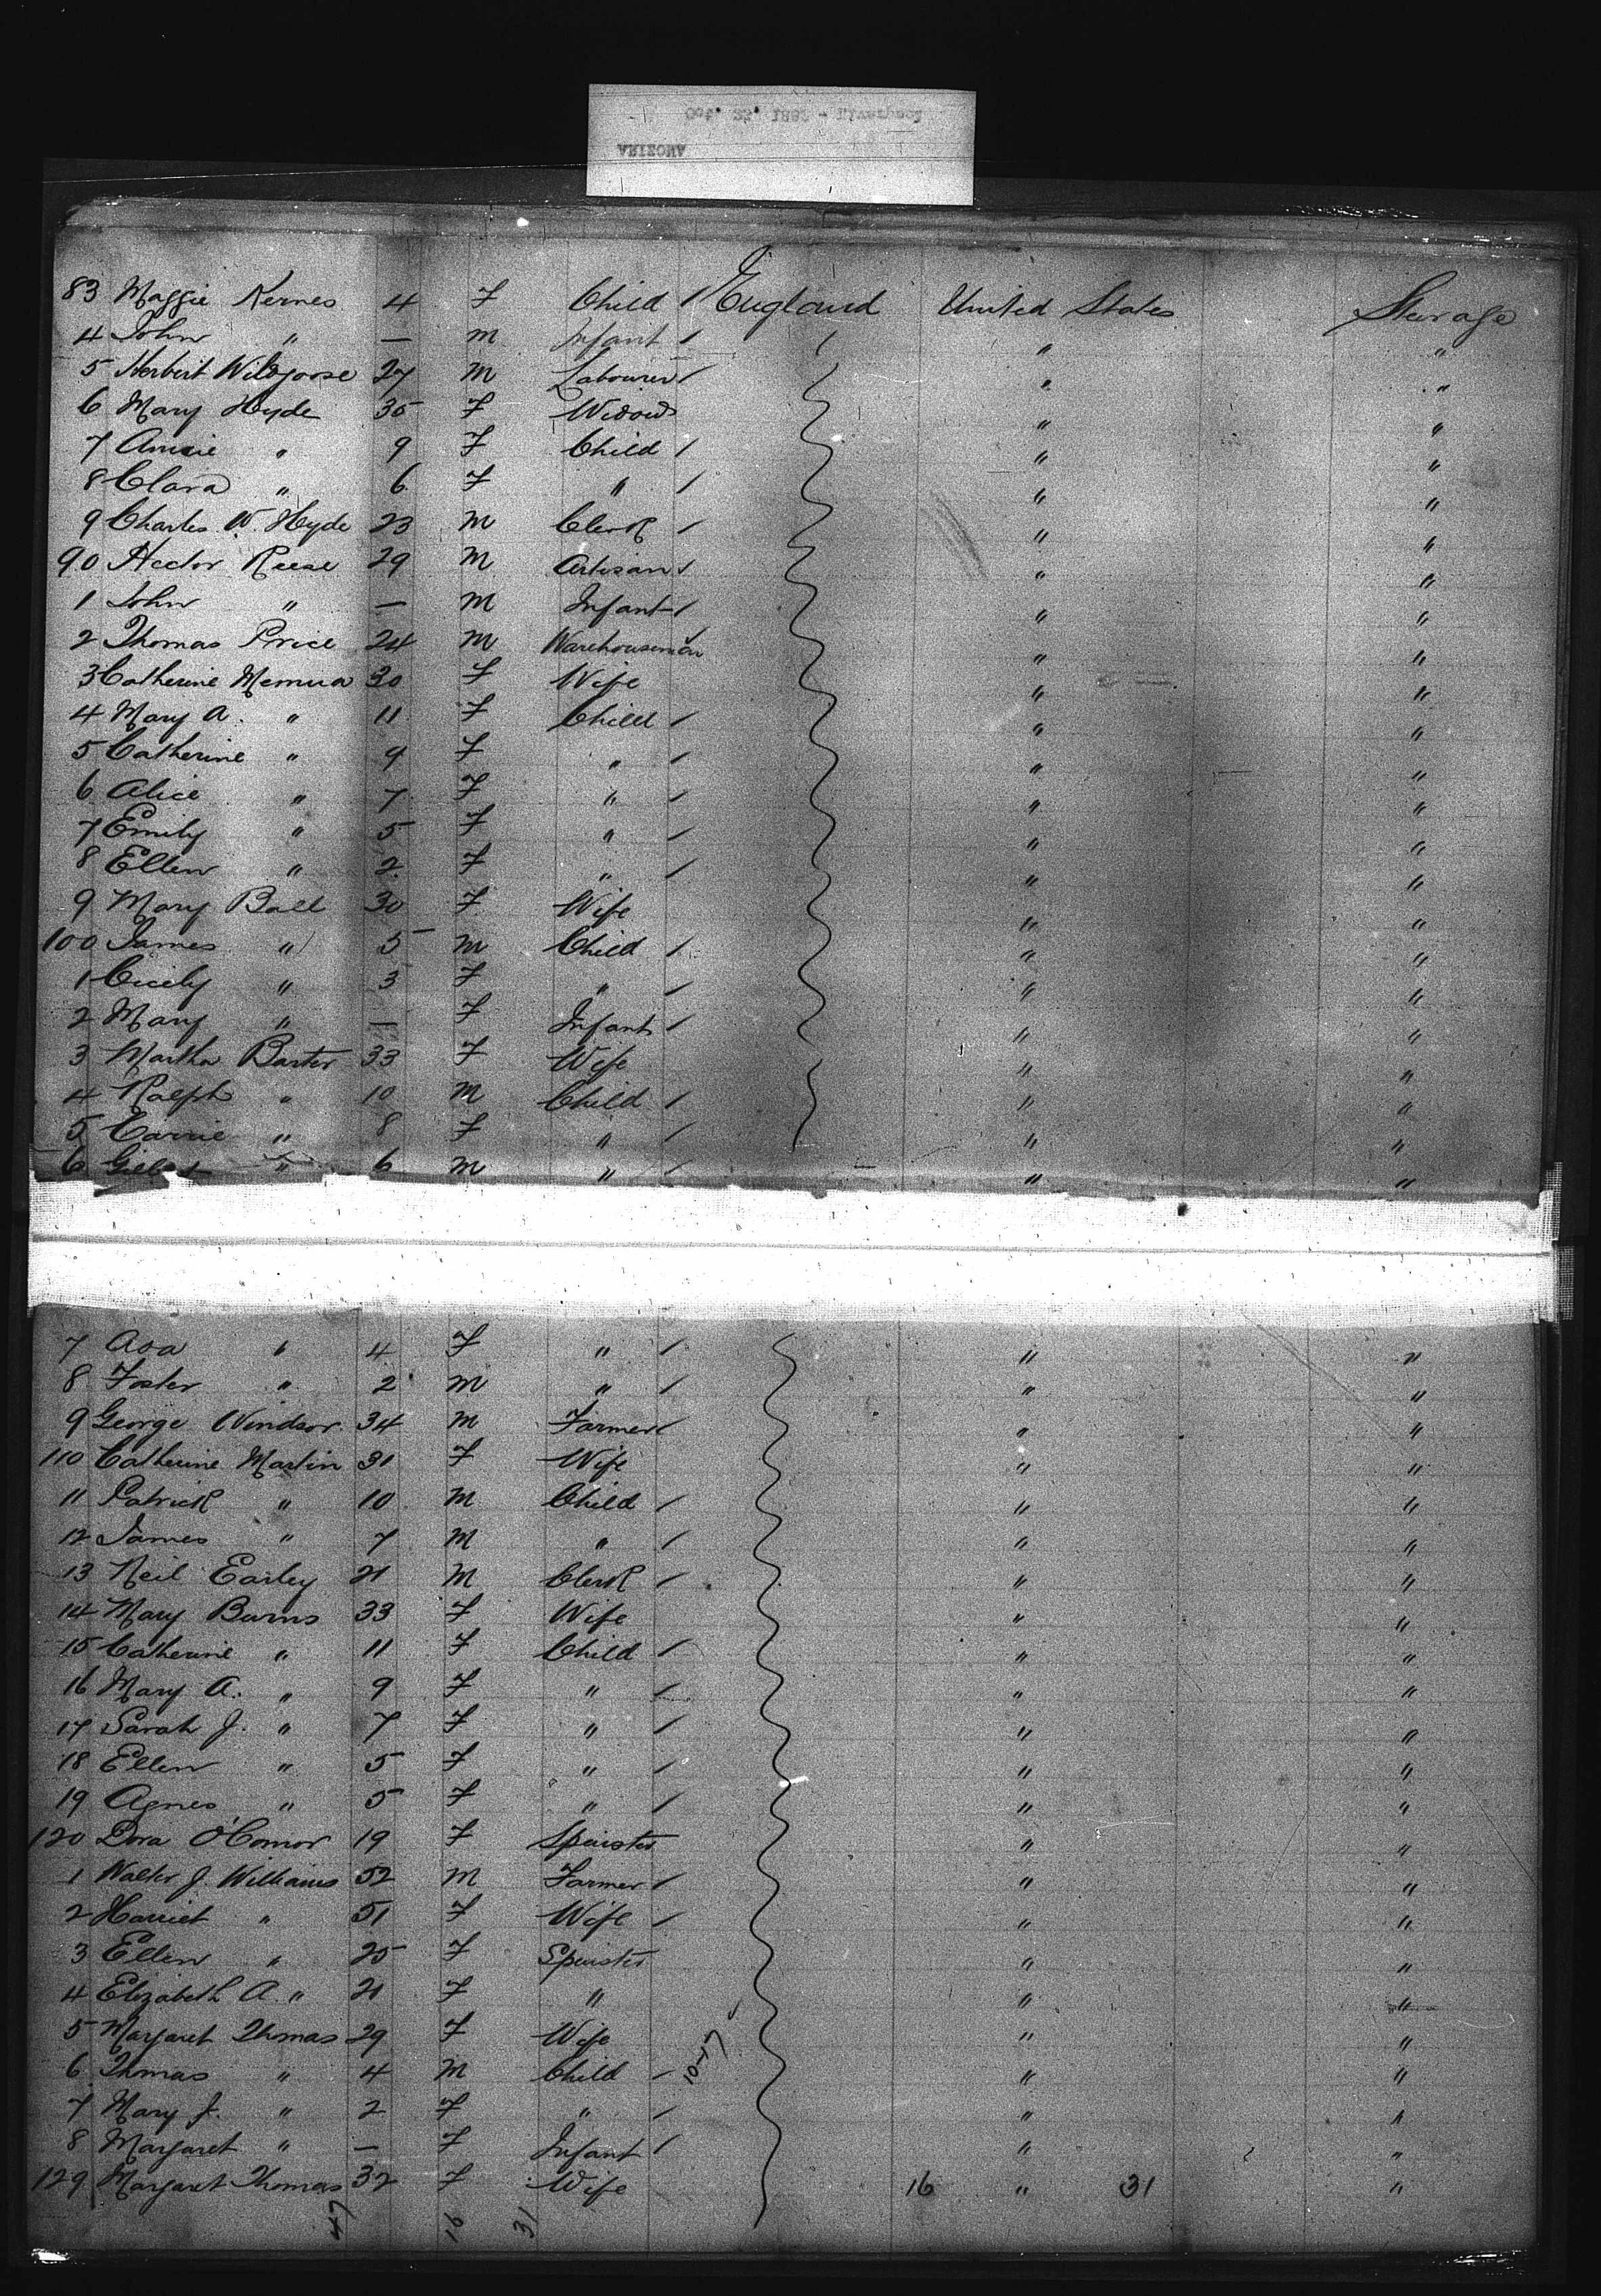 ARIZONA
83 Maggie Kernes 4 F Child / England United States Steerage
4 John " — m Infant / " "
5 Herbert Wildgoose 27 m Labourer / " "
6 Mary Hyde 35 F Widow " "
7 Annie " 9 F Child / " "
8 Clara " 6 F " / " "
9 Charles W. Hyde 23 m Clerk / " "
90 Hector Reese 29 m Artisan / " "
1 John " — m Infant / " "
2 Thomas Price 24 m Warehouseman " "
3 Catherine 30 F Wife " "
4 Mary A. " 11 F Child / " "
5 Catherine " 9 F " / " "
6 Alice " 7 F " / " "
7 Emily " 5 F " / " "
8 Ellen " 2 F " / " "
9 Mary Ball 30 F Wife " "
100 James " 5 m Child / " "
1 Cicely " 3 F " / " "
2 Mary " — F Infant / " "
3 Martha Barter 33 F Wife " "
4 Ralph " 10 m Child / " "
5 Carrie " 8 F " / " "
6 " 6 m " / " "
7 Ada " 4 F " / " "
8 Foster " 2 m " / " "
9 George Windsor 34 m Farmer / " "
110 Catherine Martin 31 F Wife " "
11 Patrick " 10 m Child / " "
12 James " 7 m " / " "
13 Neil Earley 21 m Clerk / " "
14 Mary Burns 33 F Wife " "
15 Catherine " 11 F Child / " "
16 Mary A. " 9 F " / " "
17 Sarah J. " 7 F " / " "
18 Ellen " 5 F " / " "
19 Agnes " 5 F " / " "
120 Dora O'Connor 19 F Spinster " "
1 Walter J. Williams 52 m Farmer / " "
2 Harriet " 51 F Wife / " "
3 Ellen " 25 F Spinster " "
4 Elizabeth A. " 21 F " " "
5 Margaret Thomas 29 F Wife " "
6 Thomas " 4 m Child / 10-17 " "
7 Mary J. " 2 F " / " "
8 Margaret " — F Infant / " "
129 Margaret Thomas 32 F Wife 16 " 31 "
47 16 31